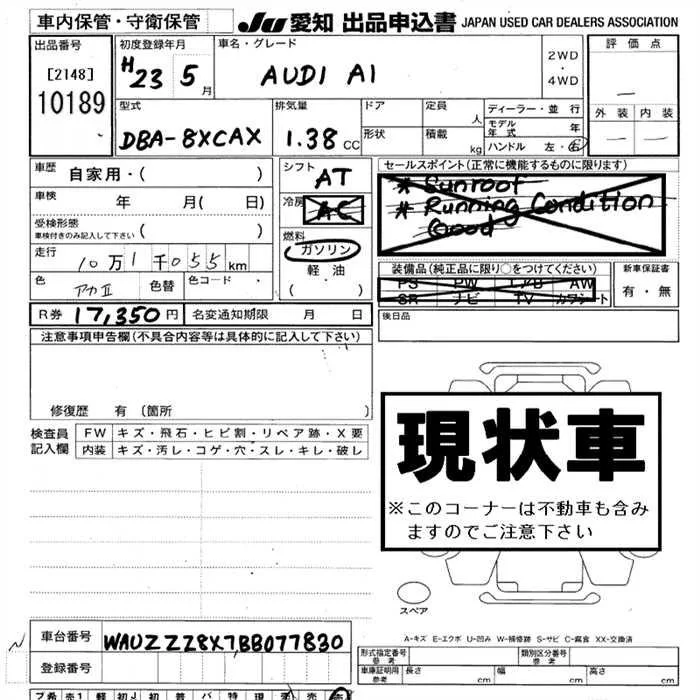 車内保管・守衛保管 JU 愛知 出品申込書 JAPAN USED CAR DEALERS ASSOCIATION
出品番号
[2148]
10189
初度登録年月
H 23 5 月
車名・グレード
AUDI A1
2WD
・
4WD
評価点
—
外装 内装
— —
型式
DBA-8XCAX
排気量
1.38 CC
ドア
形状
定員 人
積載 kg
ディーラー・並行
モデル年式 年
ハンドル 左・右
車歴 自家用・( )
車検 年 月( 日)
受検形態
車検付きのみ記入して下さい ( )
走行
10万1千055 km
色 アカII 色替 色コード・
シフト
AT
冷房 AC
燃料
ガソリン
軽・油
( ・ )
セールスポイント(正常に機能するものに限ります)
* Sunroof
* Running Condition
Good
装備品(純正品に限り○をつけてください)
PS PW エアB AW
SR ナビ TV カワシート
新車保証書
有・無
R券 17,350円 名変通知期限 月 日
後日品
注意事項申告欄(不具合内容等は具体的に記入して下さい)
修復歴 有 (箇所 )
検査員
記入欄
FW キズ・飛石・ヒビ割・リペア跡・X要
内装 キズ・汚レ・コゲ・穴・スレ・キレ・破レ
現状車
※このコーナーは不動車も含み
ますのでご注意下さい
スペア
A-キズ E-エクボ U-凹み W-補修跡 S-サビ C-腐食 XX-交換済
車台番号 WAUZZZ8X7BB077830
登録番号
形式指定番号
参考
類別区分番号
参考
車庫証明用
参考
長さ cm 幅 cm 高さ cm